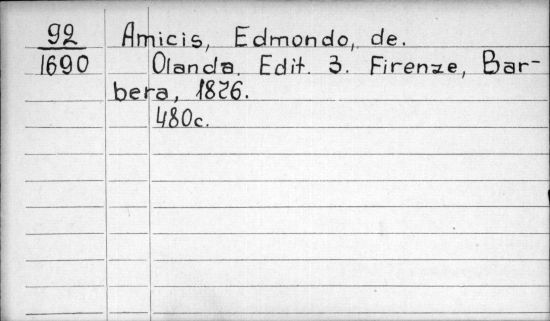 92
1690
Amicis, Edmondo, de.
Olanda. Edit. 3. Firenze, Bar-
bera, 1876.
480c.